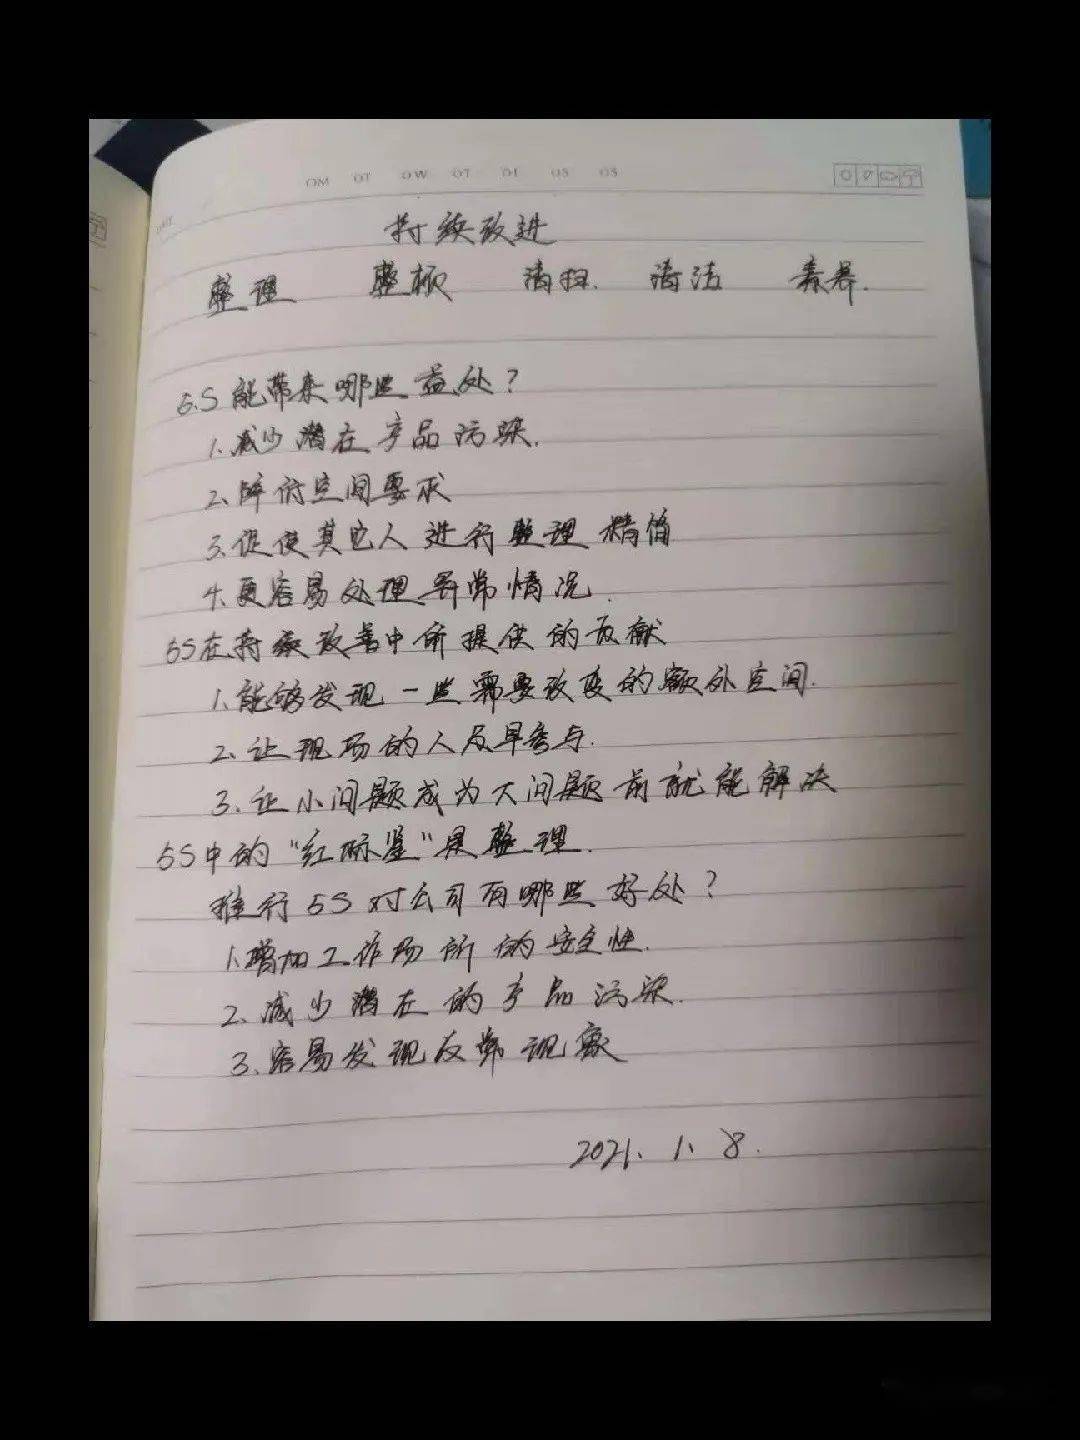 持续改进
整理 整顿 清扫. 清洁 素养.
5S能带来哪些益处?
1.减少潜在产品污染.
2.降低空间要求
3.促使其它人进行整理精简
4.更容易处理异常情况.
5S在持续改善中所提供的贡献
1.能够发现一些需要改变的额外空间.
2.让现场的人及早参与.
3.让小问题成为大问题前就能解决
5S中的"红标签"是整理.
推行5S对公司有哪些好处?
1.增加工作场所的安全性.
2.减少潜在的产品污染.
3.容易发现反常现象
2021.1.8.